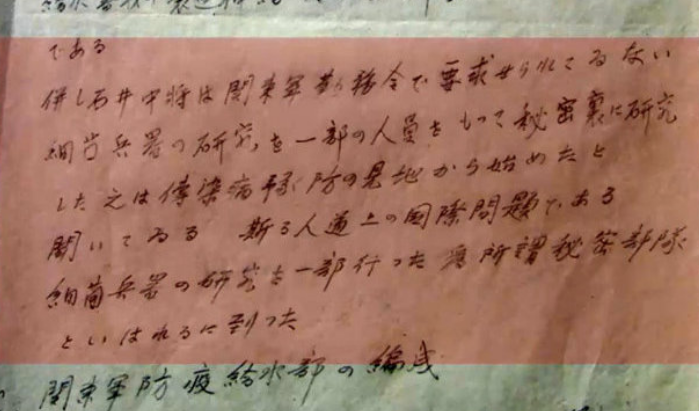 である
併し石井中将は関東軍勤務令で要求せられてゐない
細菌兵器の研究を一部の人員をもつて秘密裏に研究
した之は傳染病予防の見地から始めたと
聞いてゐる 斯る人道上の国際問題である
細菌兵器の研究を一部行つた為所謂秘密部隊
といはれるに到つた
関東軍防疫給水部の編成